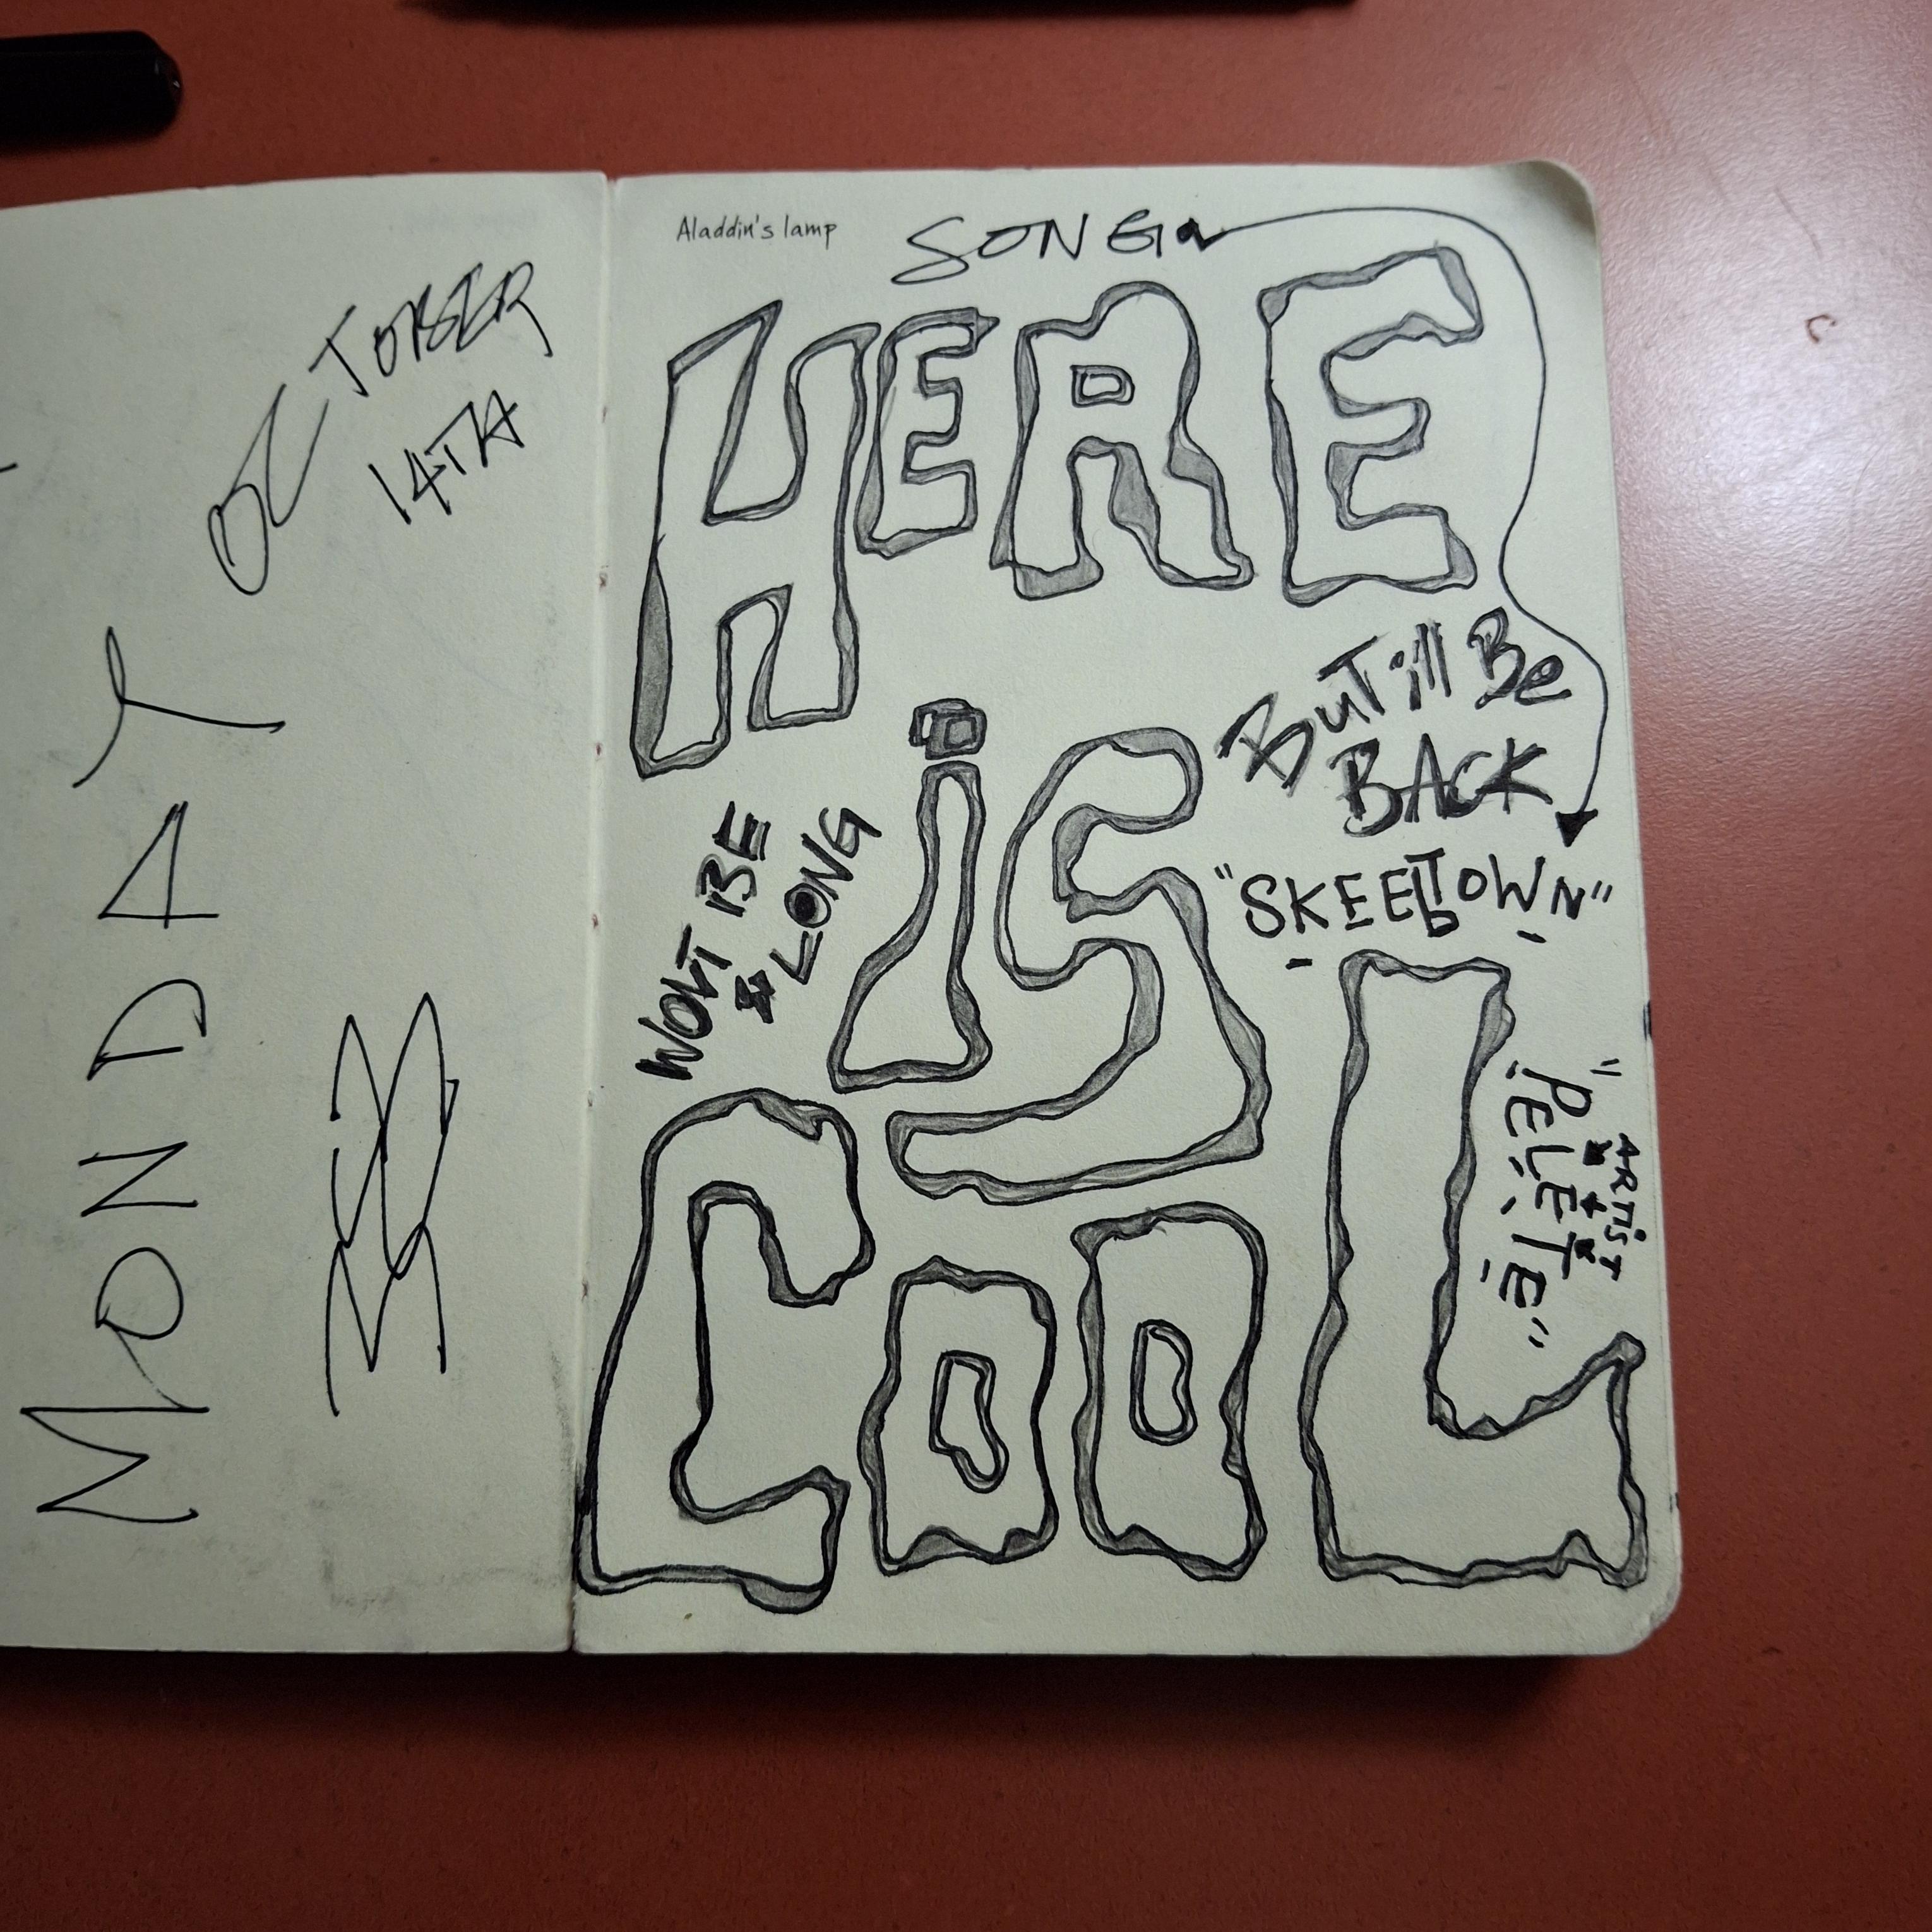 MONDAY
OCTOBER
14TH
Aladdin's lamp
SONG
HERE
iS
COOL
BuT ill Be
BACK
WONT BE
LONG
"SKEETOWN"
ARTiST
"PELETE"